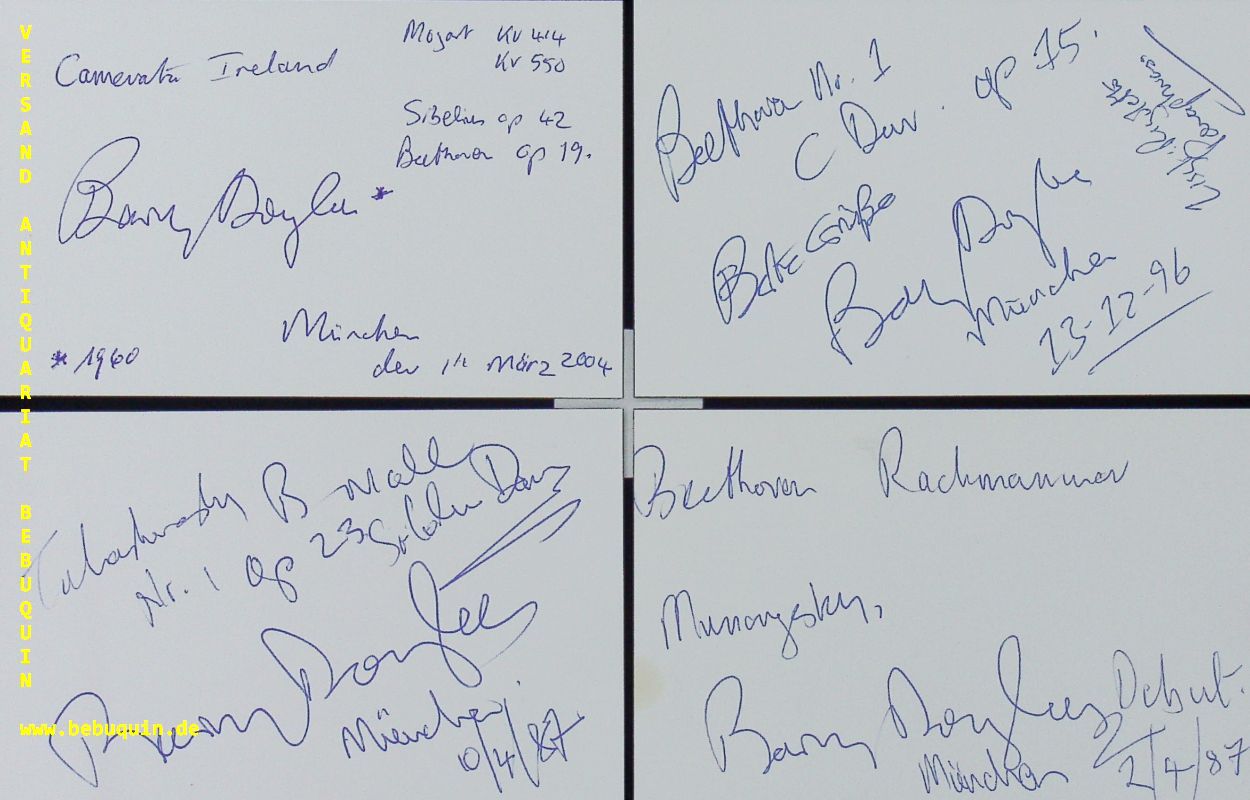 VERSAND ANTIQUARIAT BEBUQUIN
www.bebuquin.de
Mozart KV 414
KV 550
Camerata Ireland
Sibelius op 42
Beethoven op 19.
Barry Douglas *
München
* 1960
den 1. März 2004
Beethoven Nr. 1
C Dur. op 15.
Beste Grüße
Barry Douglas
München
13-12-96
Tschaikowsky B-moll
Nr. 1 op 23
Barry Douglas
München
10/4/87
Beethoven Rachmaninov
Mussorgsky,
Barry Douglas Debut.
München 2/4/87